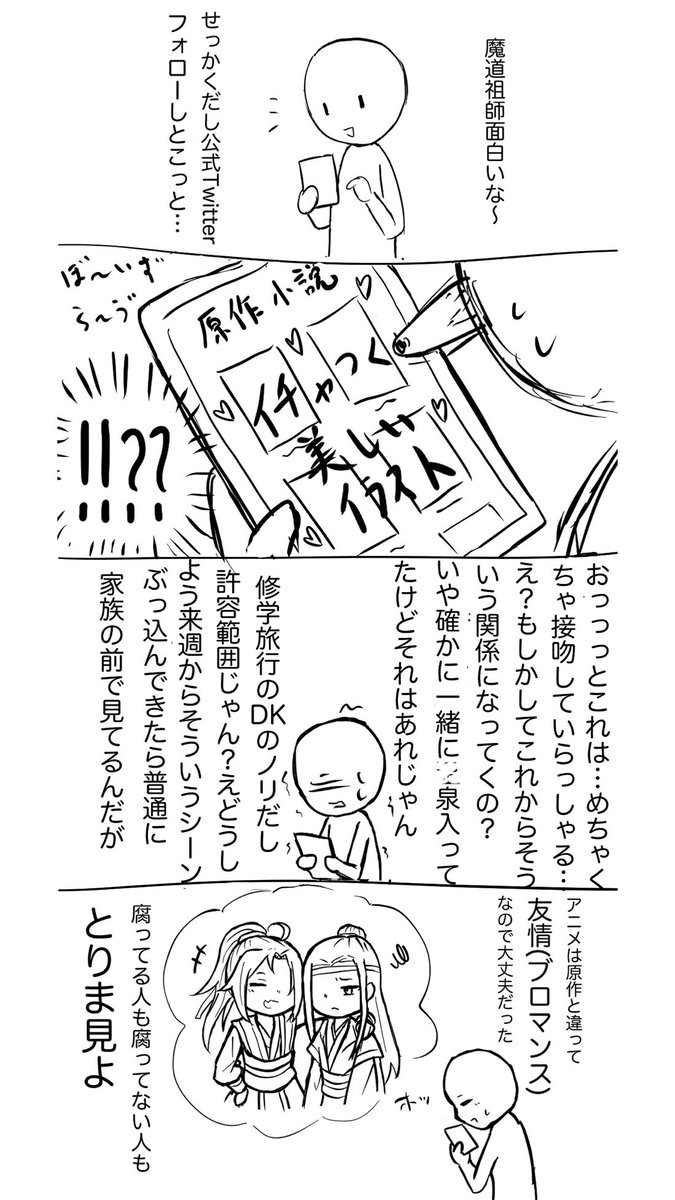 魔道祖師面白いな〜
せっかくだし公式Twitter
フォローしとこっと…
ぼ〜いず
ら〜ぶ
原作小説
イチャつく
美しい
イラスト
!!??
おっっっとこれは…めちゃく
ちゃ接吻していらっしゃる…
え？もしかしてこれからそう
いう関係になってくの？
いや確かに一緒に泉入って
たけどそれはあれじゃん
修学旅行のDKのノリだし
許容範囲じゃん？えどうし
よう来週からそういうシーン
ぶっ込んできたら普通に
家族の前で見てるんだが
アニメは原作と違って
友情(ブロマンス)
なので大丈夫だった
ホッ
腐ってる人も腐ってない人も
とりま見よ